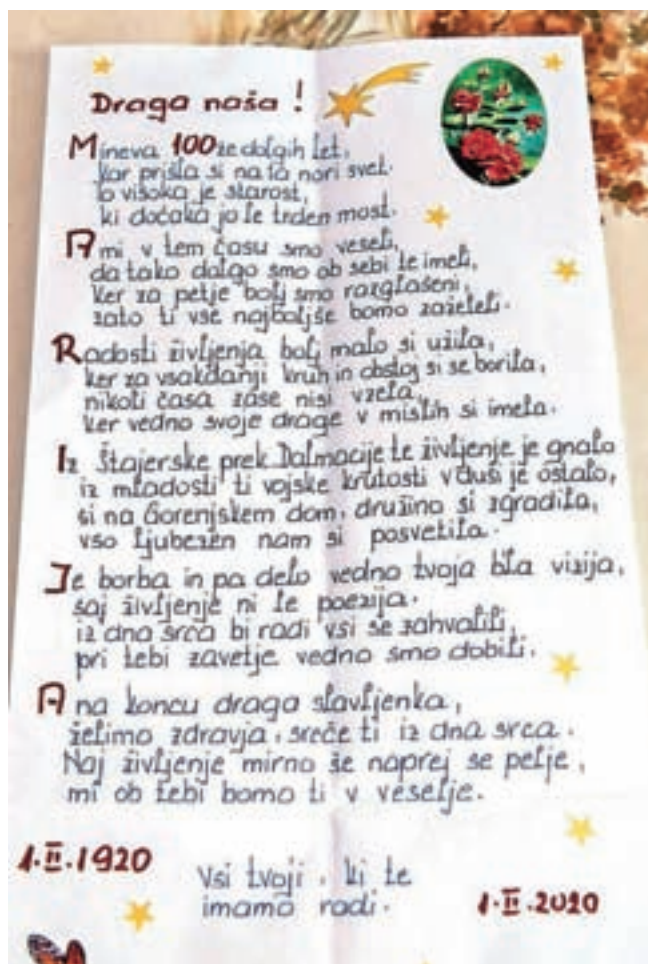 Draga naša!
Mineva 100 že dolgih let,
kar prišla si na ta nori svet.
To visoka je starost,
ki dočaka jo le trden most.
A mi v tem času smo veseli,
da tako dolgo smo ob sebi te imeli,
ker za petje bolj smo razglašeni,
zato ti vse najboljše bomo zaželeli.
Radosti življenja bolj malo si užila,
ker za vsakdanji kruh in obstoj si se borila,
nikoli časa zase nisi vzela,
ker vedno svoje drage v mislih si imela.
Iz Štajerske prek Dalmacije te življenje je gnalo
iz mladosti ti vojske krutosti v duši je ostalo,
si na Gorenjskem dom, družino si zgradila,
vso ljubezen nam si posvetila.
Je borba in pa delo vedno tvoja bila vizija,
saj življenje ni le poezija.
iz dna srca bi radi vsi se zahvalili,
pri tebi zavetje vedno smo dobili.
A na koncu draga slavljenka,
želimo zdravja, sreče ti iz dna srca.
Naj življenje mirno še naprej se pelje,
mi ob tebi bomo ti v veselje.
1.II.1920
Vsi tvoji, ki te
imamo radi.
1.II.2020